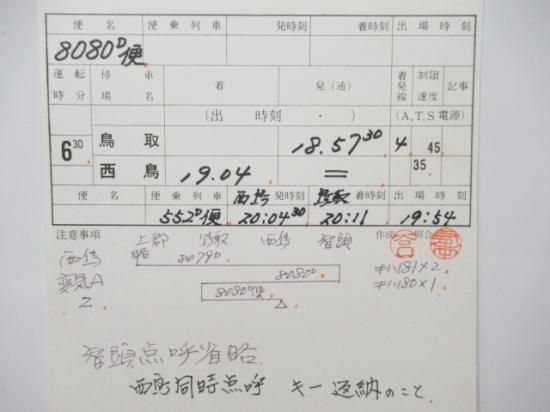 便名 便乗列車 発時刻 着時刻 出場時刻
8080D便
運転時分 停車場名 着 発(通) 着発線 制限速度 記事
(出時刻・) (A,T,S電源)
6 30 鳥取 18.57 30 4 45
西鳥 19.04 = 35
便名 便乗列車 西鳥 発時刻 鳥取 着時刻 出場時刻
552D便 20:04 30 20:11 19:54
注意事項 上郡 鳥取 西鳥 智頭 作成 照合
略 8079D
8080D
8080D便
キハ181×2
キハ180×1
智頭点呼省略.
西鳥同時点呼 キー返納のこと.